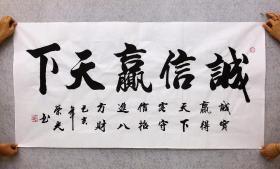 誠信贏天下
誠實
贏得
天下
客守
信招
進八
方財
己亥
年
榮光
書